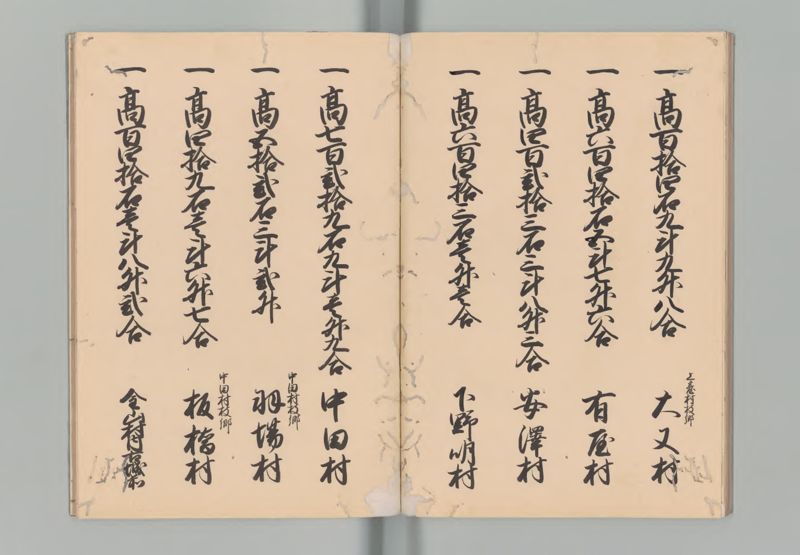 一 高百拾四石九斗九升八合
上意村枝郷
大又村
一 高六百四拾石五斗七升六合
有屋村
一 高四百弐拾三石三斗八升三合
安澤村
一 高六百四拾三石壱升壱合
下野明村
一 高七百弐拾九石九斗壱升九合
中田村
一 高五拾弐石三斗弐升
中田村枝郷
羽場村
一 高四拾九石壱斗六升七合
中田村枝郷
板橋村
一 高百四拾石壱斗八升弐合
金山村